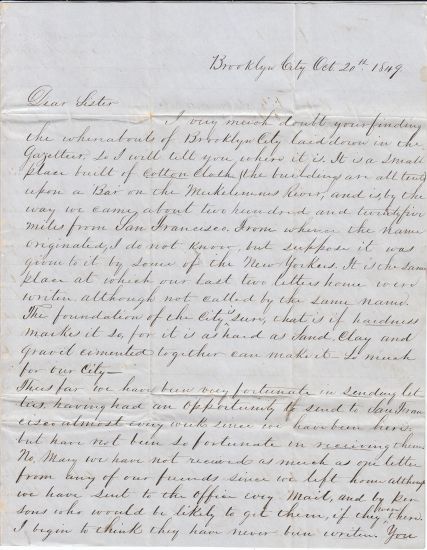 Brooklyn City Oct. 20th 1849
Dear Sister
I very much doubt your finding
the whereabouts of Brooklyn City laid down in the
Gazettier, So I will tell you where it is. It is a small
place built of Cotton Cloth (the buildings are all tents
upon a Bar on the Mukelemus River, and is, by the
way we came about two hundred and twentyfive
miles from San Francisco. From whence the name
originated, I do not know, but suppose it was
given to it by some of the New Yorkers. It is the same
place at which our last two letters home were
written although not called by the same name
The foundation of the City is sure, that is if hardness
makes it so, for it is as hard as Sand, Clay and
gravel cimented together can make it. So much
for our City—
Thus far we have been very fortunate in sending let
ters, having had an opportunity to send to San Fran
cisco almost every week since we have been here.
but have not been so fortunate in receiving them.
No, Mary we have not received as much as one letter
from any of our friends since we left home although
we have sent to the office evry Mail, and by per
sons who would be likely to get them, if they were there.
I begin to think they have never been written. You